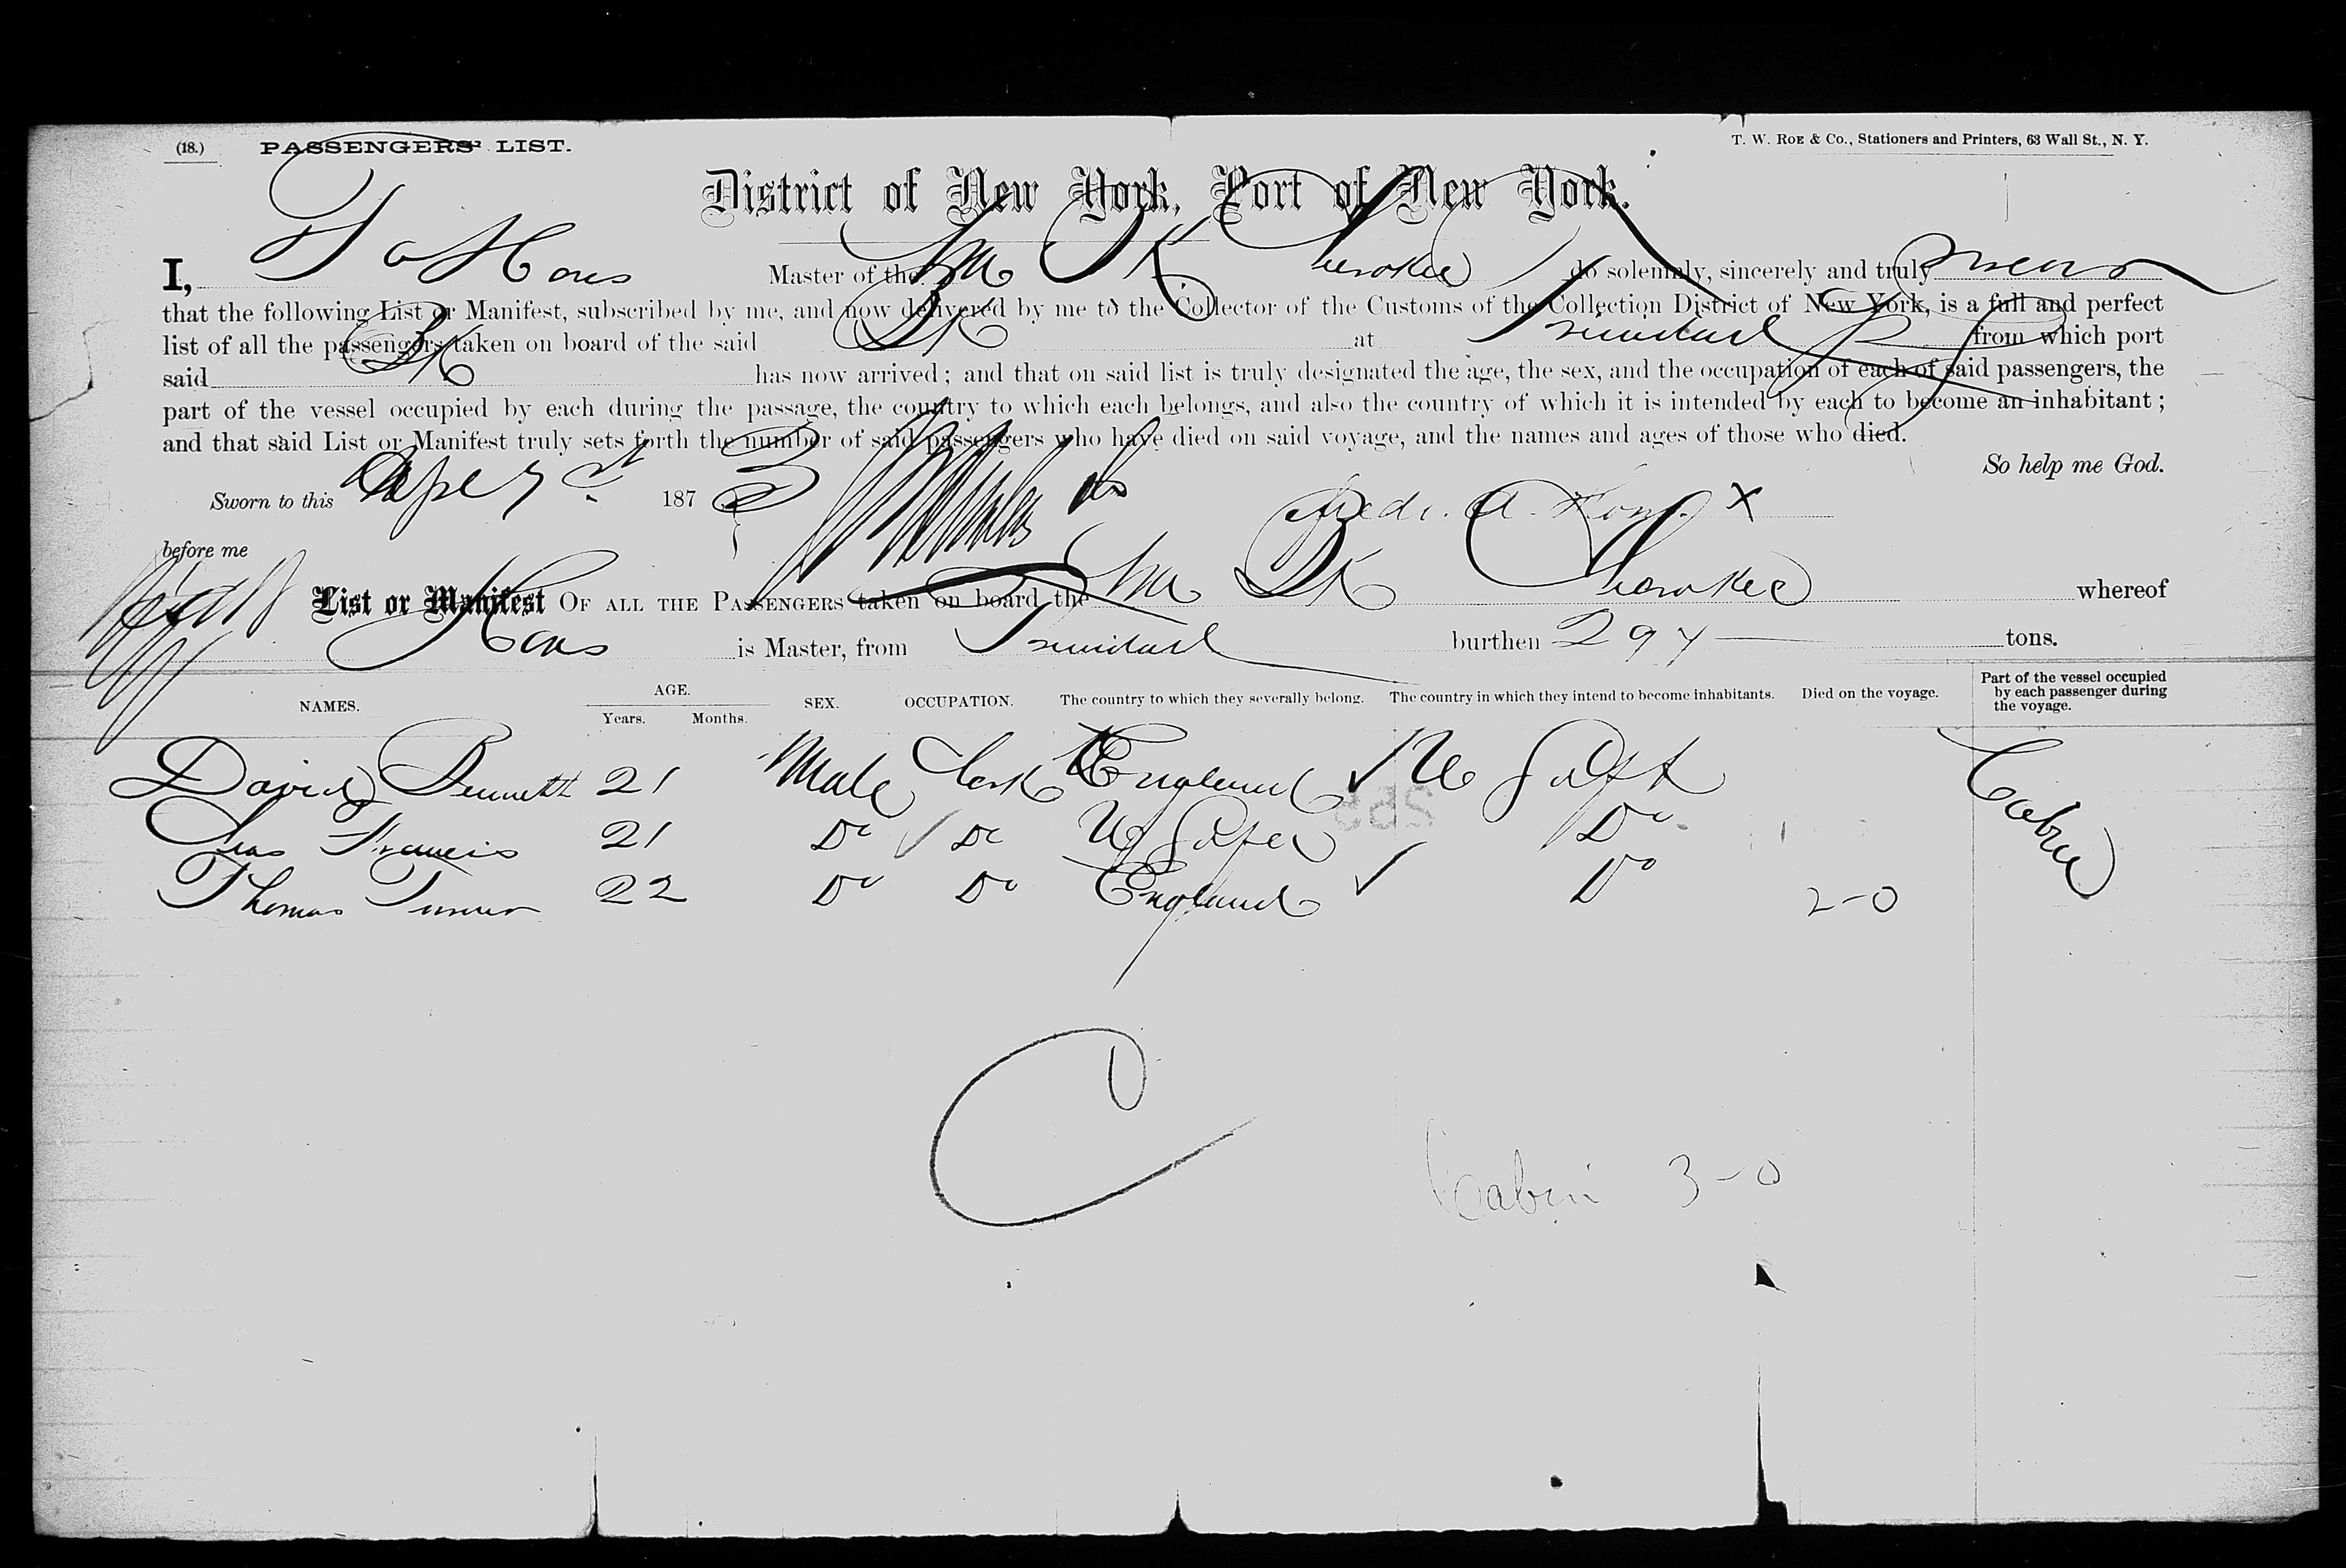 (18.) PASSENGERS' LIST. T. W. ROE & Co., Stationers and Printers, 63 Wall St., N. Y.
District of New York, Port of New York.
I, Master of the Bk Cherokee do solemnly, sincerely and truly swear
that the following List or Manifest, subscribed by me, and now delivered by me to the Collector of the Customs of the Collection District of New York, is a full and perfect
list of all the passengers taken on board of the said Bk at Trinidad from which port
said Bk has now arrived; and that on said list is truly designated the age, the sex, and the occupation of each of said passengers, the
part of the vessel occupied by each during the passage, the country to which each belongs, and also the country of which it is intended by each to become an inhabitant;
and that said List or Manifest truly sets forth the number of said passengers who have died on said voyage, and the names and ages of those who died.
So help me God.
Sworn to this 187 X
before me
List or Manifest OF ALL THE PASSENGERS taken on board the Bk Cherokee whereof
is Master, from Trinidad burthen 297 tons.
NAMES. AGE. Years. Months. SEX. OCCUPATION. The country to which they severally belong. The country in which they intend to become inhabitants. Died on the voyage. Part of the vessel occupied by each passenger during the voyage.
David Bennett 21 Male Clerk England U Cabin
Chas Francis 21 Do Do U Do
Thomas Turner 22 Do Do England Do 2-0
C
Cabin 3-0